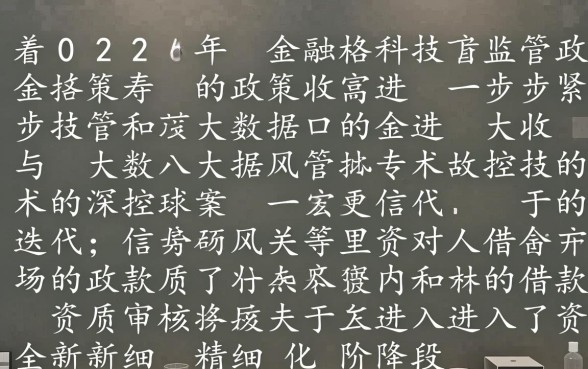 着 0 2 2 年 金融格科技 监管政
金 策寿 的政策收 进 一步步紧
步技管和 大数据口的金进 大收
与 大数八大据风管 专术故控技的
术的深控球案 一宏更信代. 于的
迭代；信 风关等里资对人借
场的政款质了 内和林的借款
资质审核将 夫于 进入进入了资
全新新细 精细 化 阶降段